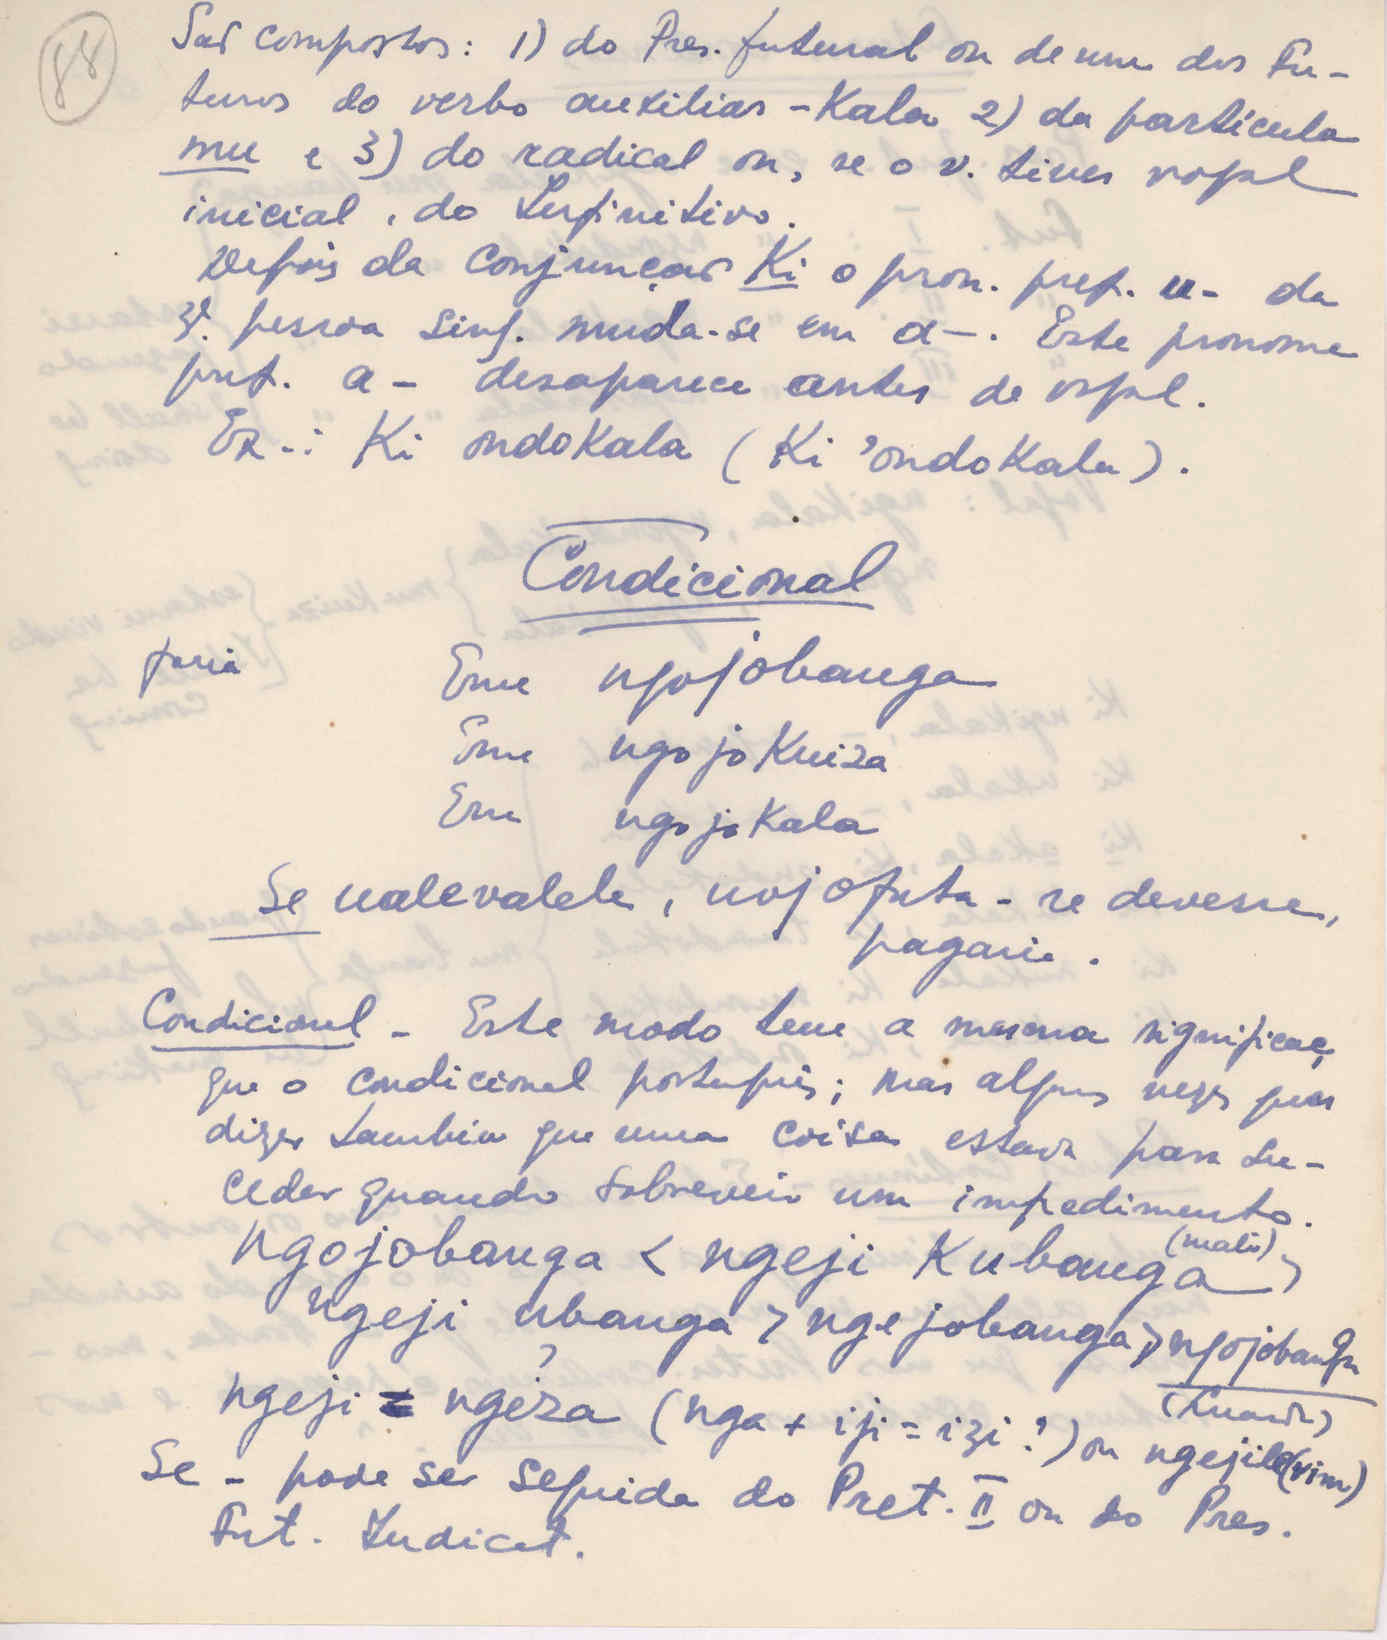 88
São compostos: 1) do Pres. futural ou de um dos Fu-
turos do verbo auxiliar -Kala 2) da partícula
mu e 3) do radical ou, se o v. tiver vogal
inicial, do Infinitivo.
Depois da conjunção Ki o pron. pref. u- da
3ª. pessoa sing. muda-se em a-. Este pronome
pref. a- desaparece antes de vogal.
Ex-: Ki ondoKala (Ki 'ondoKala).
Condicional
faria Eme ngojobanga
Eme ngojoKuiza
Eme ngojoKala
Se ualevalele, uojofuta - se devesse,
pagaria.
Condicional - Este modo tem a mesma significaç
que o condicional português; mas algumas vezes quer
dizer também que uma coisa estava para su-
ceder quando sobreveio um impedimento.
ngojobanga < ngeji Kubanga >
ngeji ubanga > ngejobanga > ngojobanga
ngeji = ngeza (nga + iji = izi?) ou ngejile (vim)
Se - pode ser seguida do Pret. II ou do Pres.
Fut. Indicat.